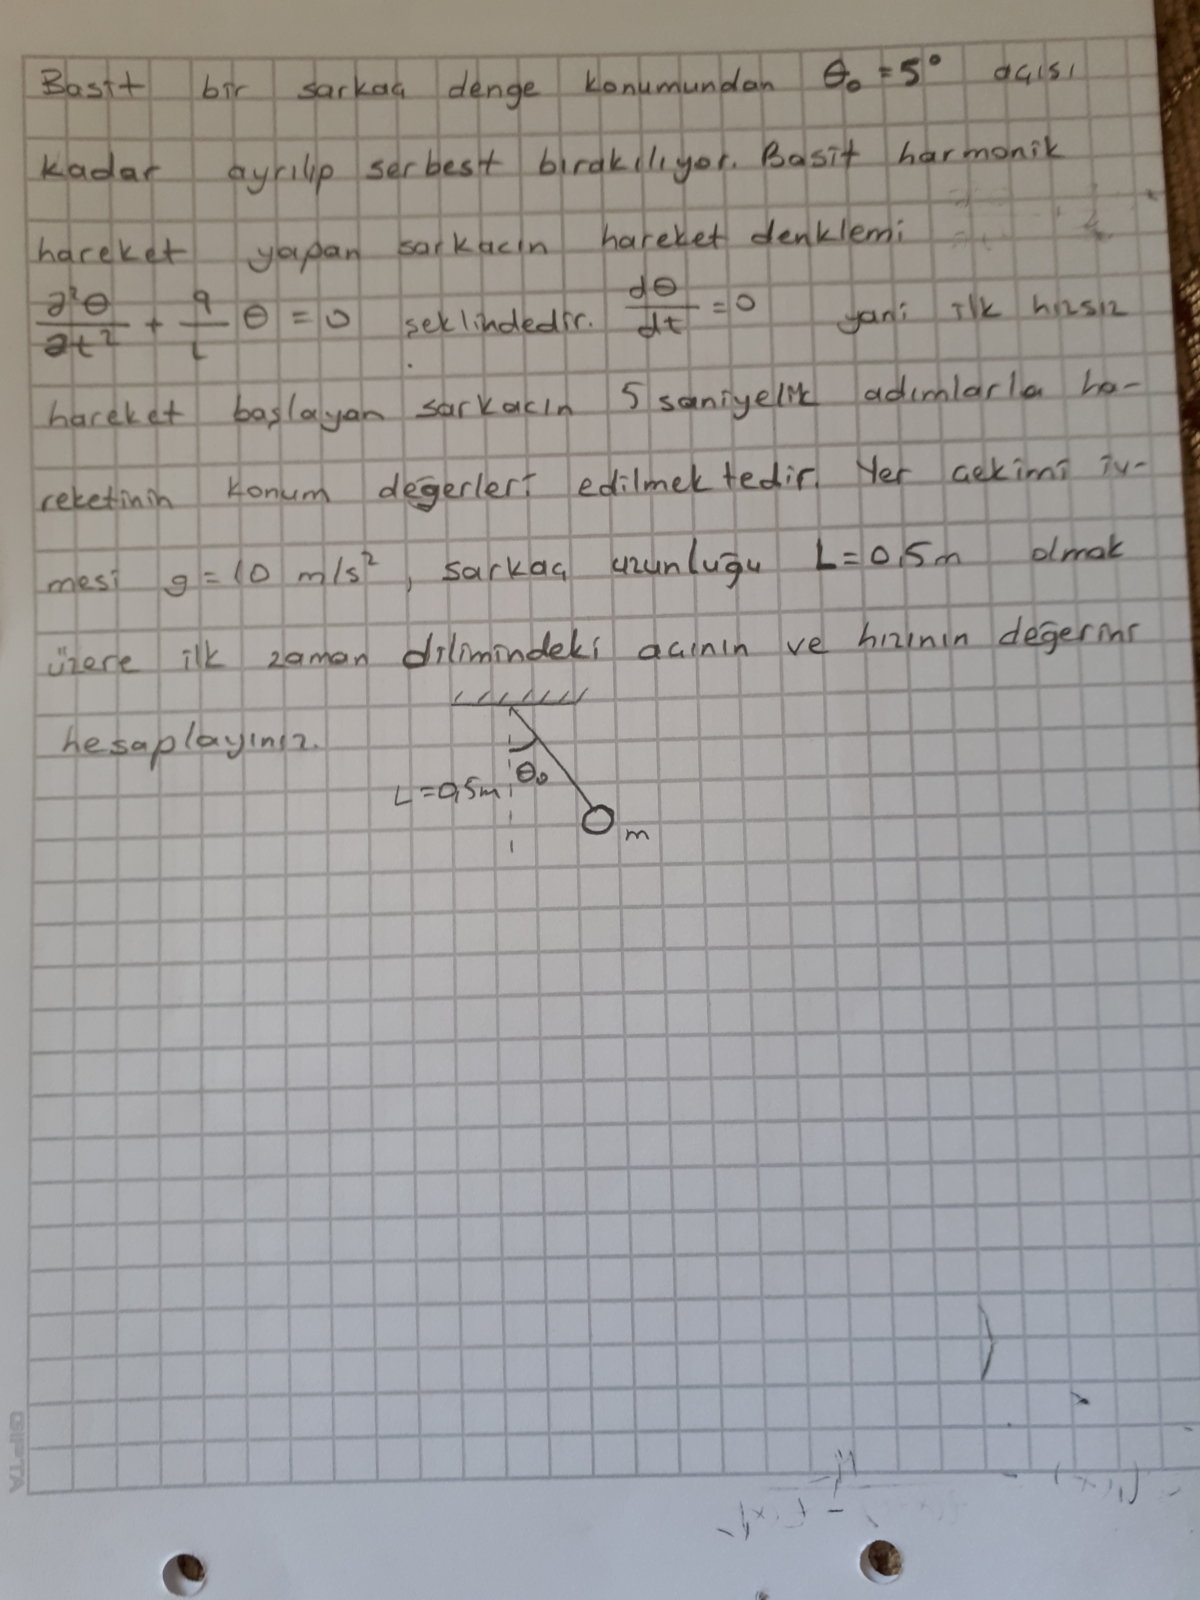 Basit bir sarkaç denge konumundan θ₀ = 5° açısı
kadar ayrılıp serbest bırakılıyor. Basit harmonik
hareket yapan sarkacın hareket denklemi
∂²θ/∂t² + g/L θ = 0 şeklindedir. dθ/dt = 0 yani ilk hızsız
hareket başlayan sarkacın 5 saniyelik adımlarla ha-
reketinin konum değerleri edilmektedir. Yer çekimi iv-
mesi g = 10 m/s², sarkaç uzunluğu L = 0,5m olmak
üzere ilk zaman dilimindeki açının ve hızının değerini
hesaplayınız.
θ₀
L = 0,5m
m
GIPTA